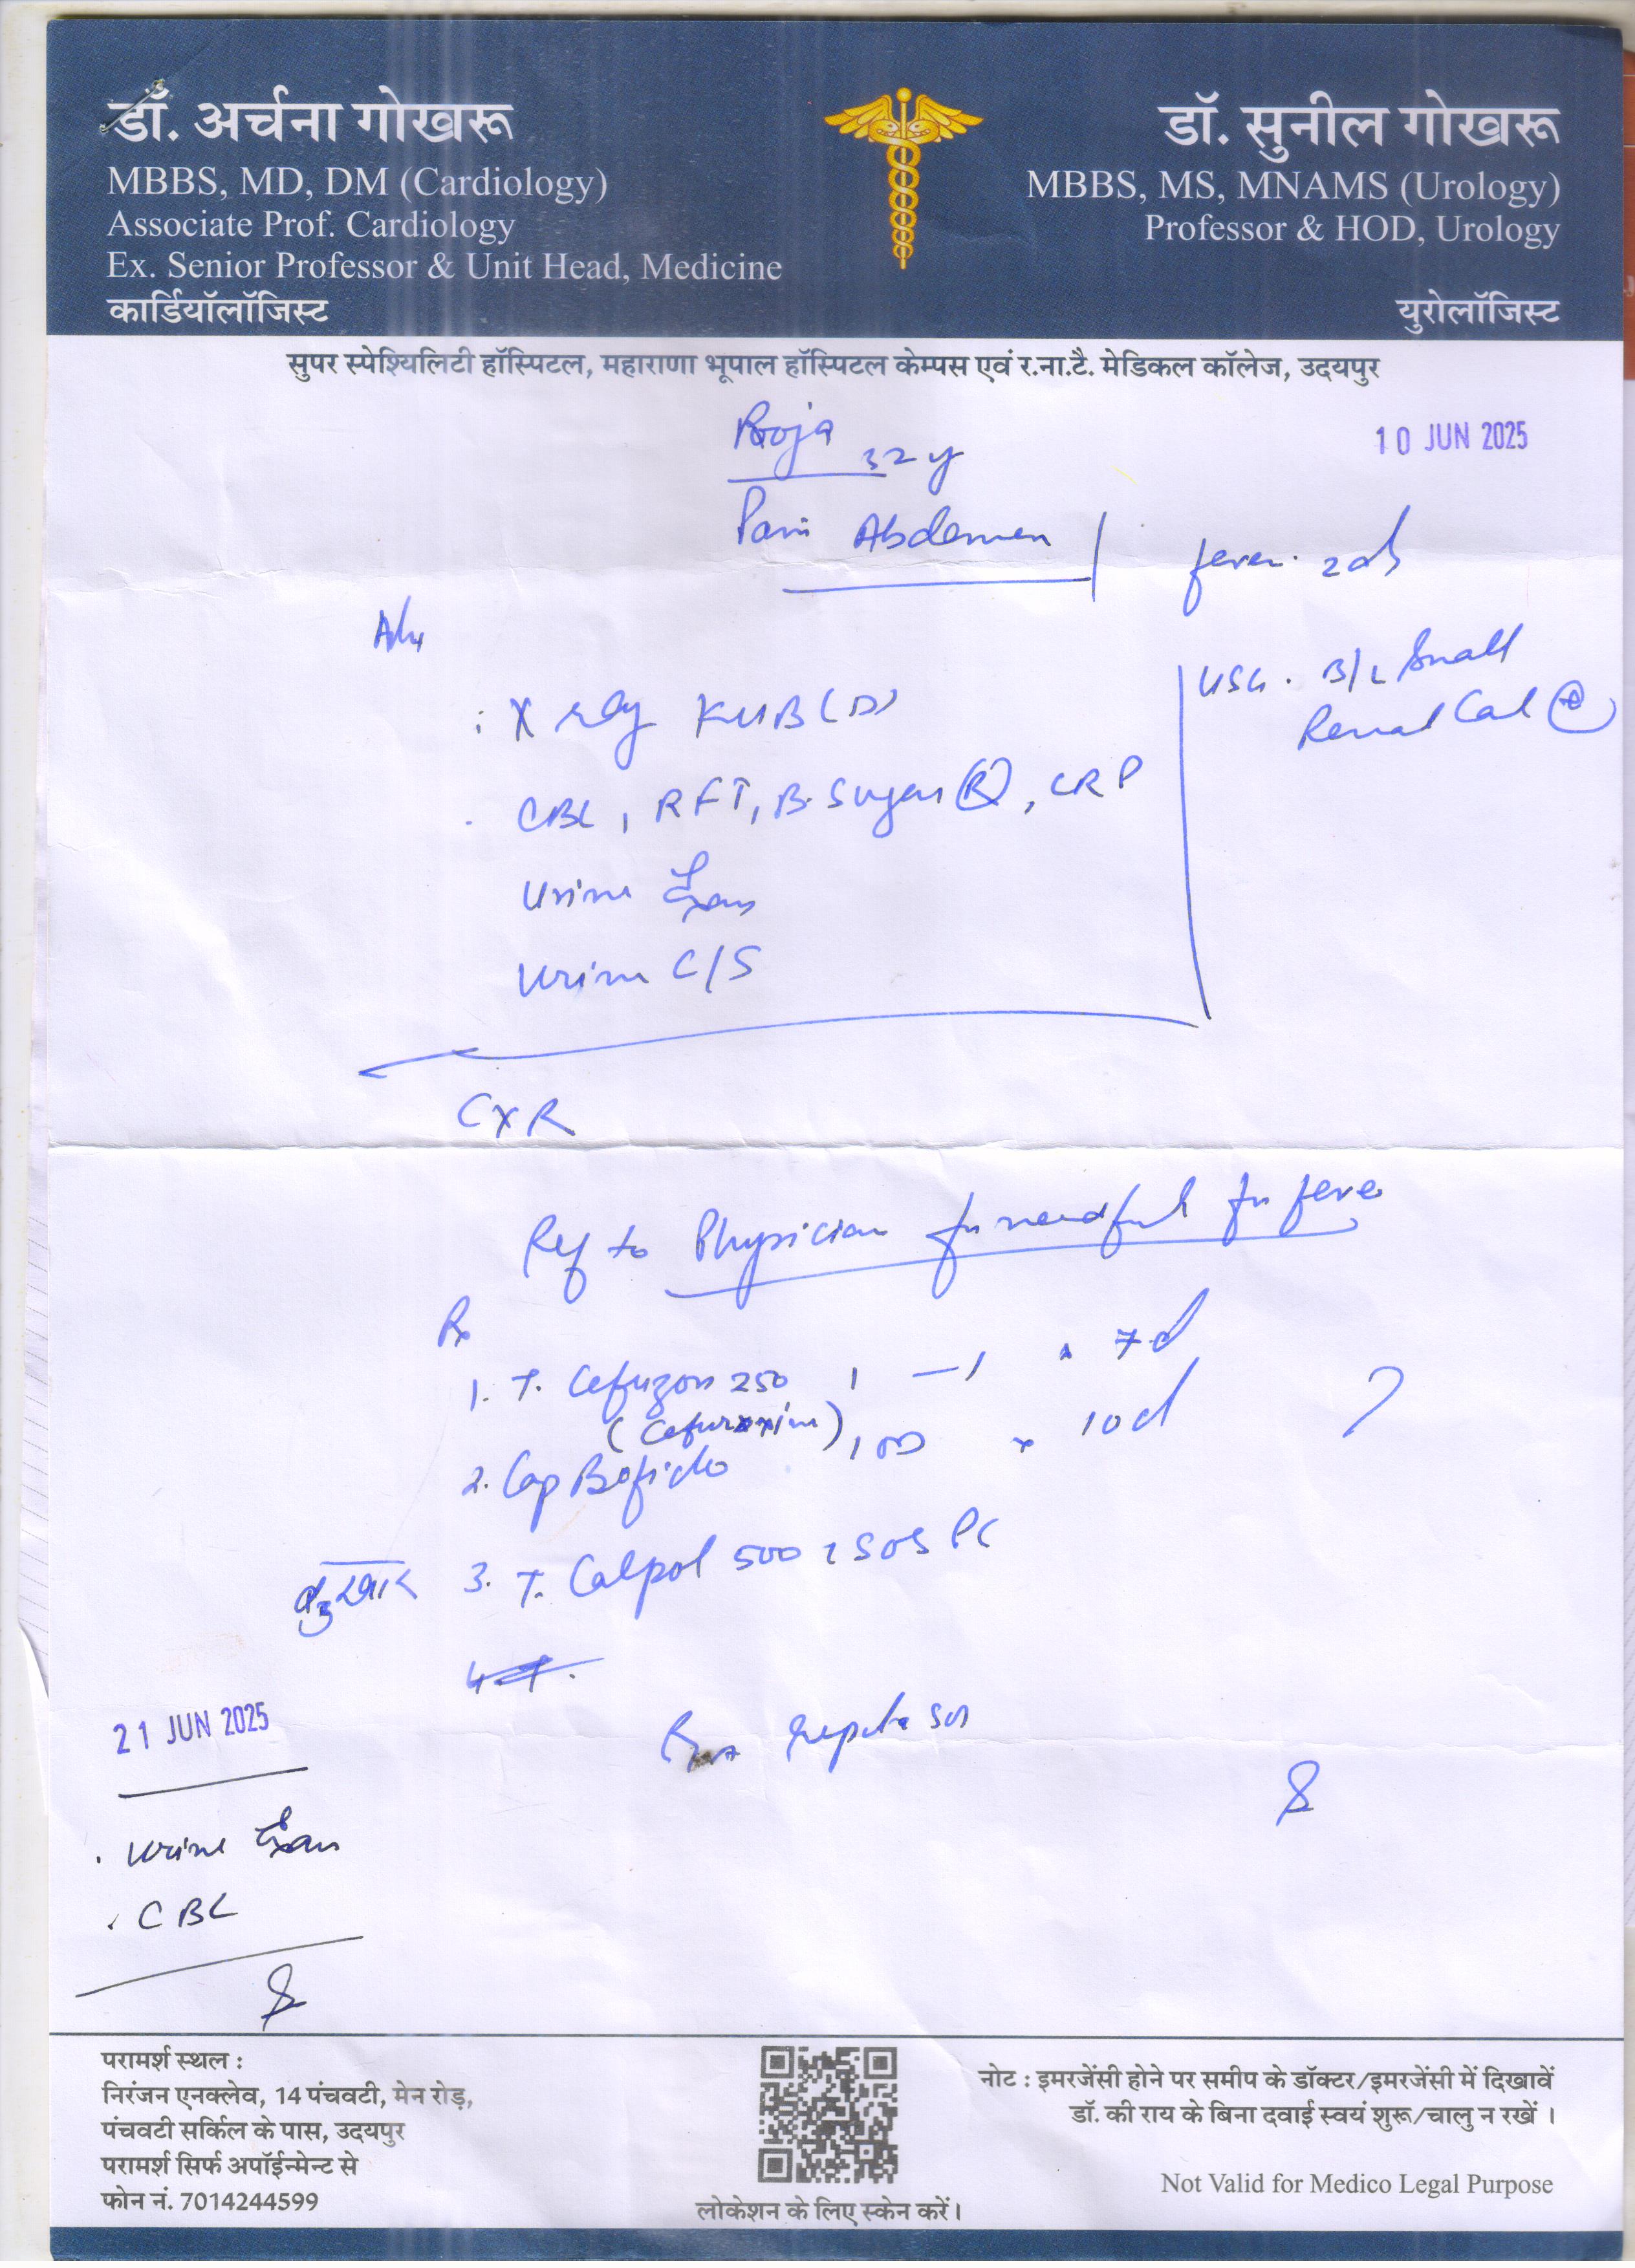 डॉ. अर्चना गोखरू
MBBS, MD, DM (Cardiology)
Associate Prof. Cardiology
Ex. Senior Professor & Unit Head, Medicine
कार्डियॉलॉजिस्ट
डॉ. सुनील गोखरू
MBBS, MS, MNAMS (Urology)
Professor & HOD, Urology
युरोलॉजिस्ट
सुपर स्पेश्यिलिटी हॉस्पिटल, महाराणा भूपाल हॉस्पिटल केम्पस एवं र.ना.टै. मेडिकल कॉलेज, उदयपुर
10 JUN 2025
Pooja 32 y
Pain Abdomen
fever. 2d
Adv
USG. B/L Small
Renal Cal
X ray KUB (D)
CBC, RFT, B. Sugar (R), CRP
Urine Exam
Urine C/S
CXR
Ref to Physician for needful for fever
Rx
1. T. Cefuzon 250 1 - 1 x 7d
(Cefuroxime)
2. Cap 1 OD x 10d
बुखार 3. T. Calpol 500 1 SOS PC
4
SOS
21 JUN 2025
. Urine Exam
. CBC
परामर्श स्थल :
निरंजन एनक्लेव, 14 पंचवटी, मेन रोड़,
पंचवटी सर्किल के पास, उदयपुर
परामर्श सिर्फ अपॉईन्मेन्ट से
फोन नं. 7014244599
लोकेशन के लिए स्केन करें।
नोट : इमरजेंसी होने पर समीप के डॉक्टर/इमरजेंसी में दिखावें
डॉ. की राय के बिना दवाई स्वयं शुरू/चालु न रखें ।
Not Valid for Medico Legal Purpose